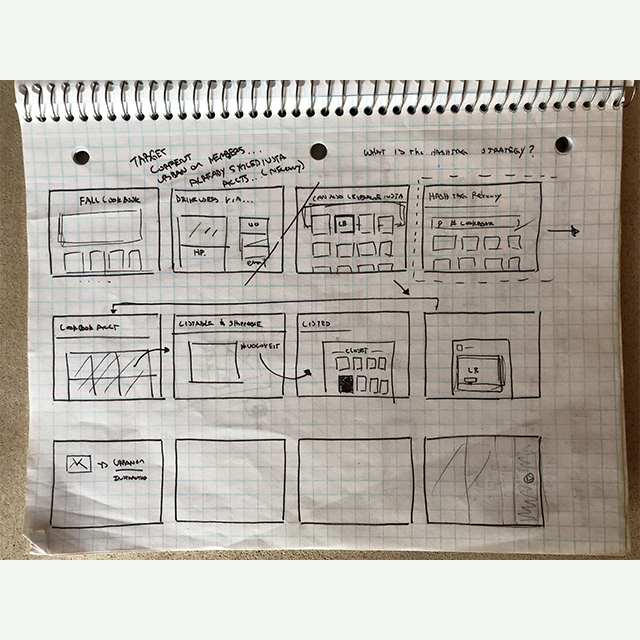 TARGET
CURRENT
URBAN ON MEMBERS...
ALREADY STYLED INSTA
ACCTS..
WHAT IS the HASHTAG STRATEGY?
FALL LOOKBOOK
DRIVE USERS VIA...
HP.
UO
email
CAN ALSO LEVERAGE INSTA
LB
HASH TAG
# LOOKBOOK
LOOKBOOK ACCT
LISTABLE & SHOPPABLE
LISTED
CLOSET
LB
URBAN ON